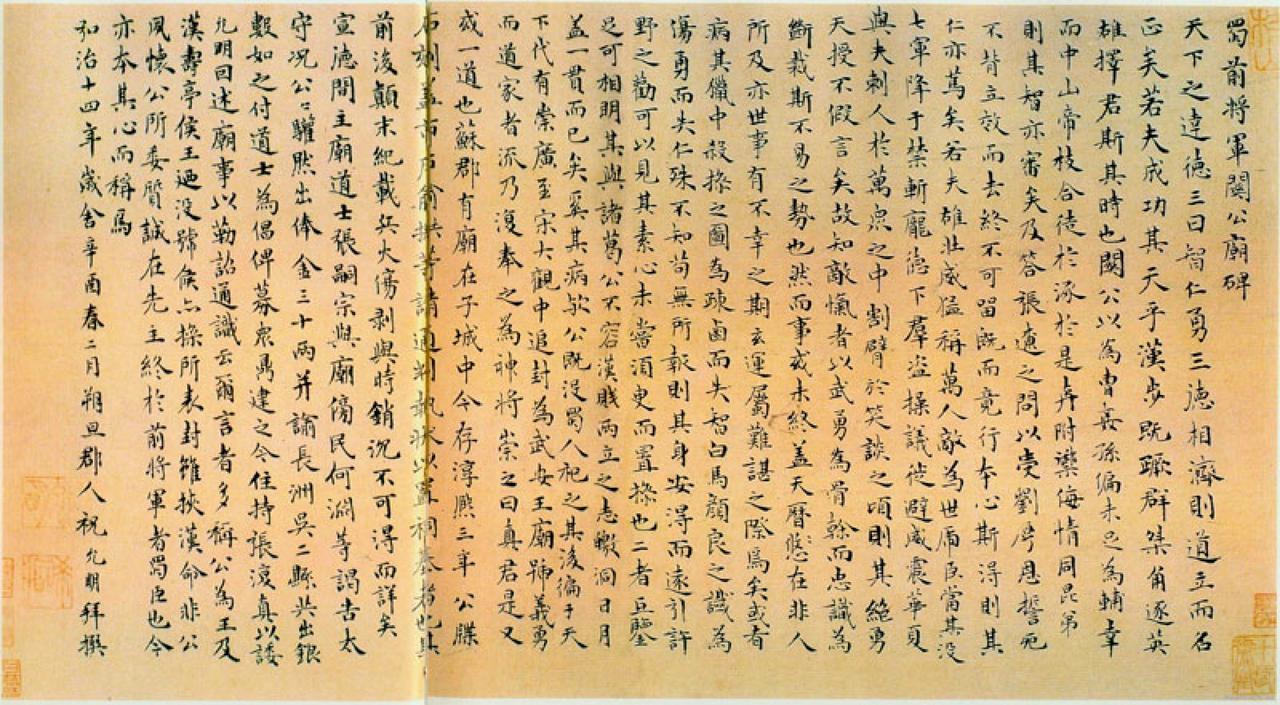 蜀前將軍關公廟碑
天下之達德三曰智仁勇三德相濟則道立而名
正矣若夫成功其天乎漢步既蹶群桀角逐英
雄擇君斯其時也關公以為曹姦孫偏未足為輔幸
而中山帝枝合徒於涿於是奔附禦侮情同昆弟
則其智亦審矣及答張遼之問以受劉厚恩誓死
不背立效而去終不可留既而竟行本心斯得則其
仁亦篤矣若夫雄壯威猛稱萬人敵為世虎臣當其沒
七軍降于禁斬龐德下群盜操議徙避威震華夏
與夫刺人於萬眾之中割臂於笑談之頃則其絕勇
天授不假言矣故知敵愾者以武勇為骨幹而忠識為
斷裁斯不易之勢也然而事或未終蓋天曆悠在非人
所及亦世事有不幸之期玄運屬難諶之際焉矣或者
病其獵中殺操之圖為疎鹵而失智白馬顏良之識為
傷勇而失仁殊不知苟無所報則其身安得而遠引許
野之勸可以見其素心未嘗須臾而置操也二者互鑒
足可相明其與諸葛公不容漢賊兩立之志皦洞日月
蓋一貫而已矣奚其病歟公既沒蜀人祀之其後徧于天
下代有崇廣至宋大觀中追封為武安王廟號義勇
而道家者流乃復奉之為神將崇之曰真君是又
或一道也蘇郡有廟在子城中今存淳熙三年公牒
石刻蓋市戶俞拱等請通判執狀以置祠基者也其
前後顛末紀載兵火傷剥與時銷沉不可得而詳矣
宣德間主廟道士張嗣宗與廟傍民何淵等謁告太
守况公公驩然出俸金三十兩并諭長洲吳二縣共出銀
數如之付道士為倡俾募眾鼎建之今住持張復真以諉
允明回述廟事以勒詒通識云爾言者多稱公為王及
漢壽亭侯王廼沒號侯亦操所表封雖挾漢命非公
夙懷公所委質誠在先主終於前將軍者蜀臣也今
亦本其心而稱焉
弘治十四年歲舍辛酉春二月朔旦郡人祝允明拜撰